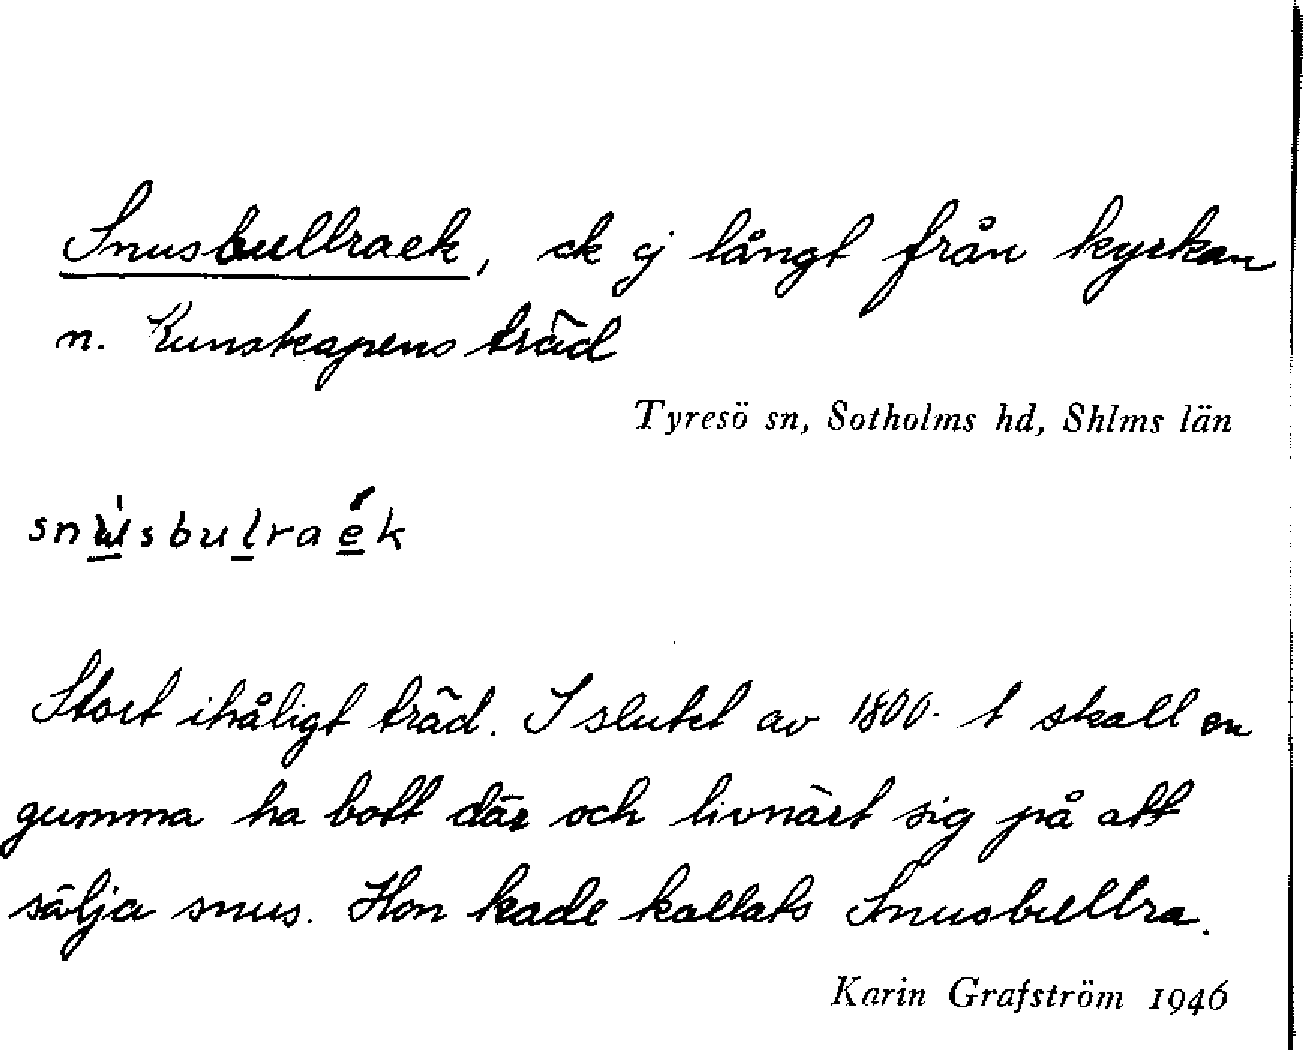 Snusbullraek, ek ej långt från kyrkan
n. Kunskapens träd
Tyresö sn, Sotholms hd, Shlms län
Stort ihåligt träd. I slutet av 1800-t skall en
gumma ha bott där och livnärt sig på att
sälja snus. Hon hade kallats Snusbullra.
Karin Grafström 1946